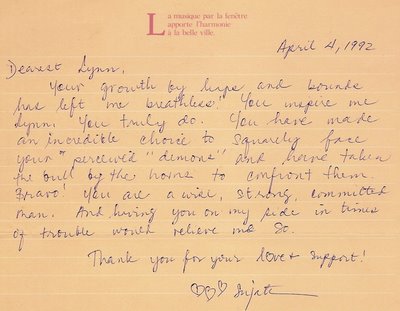 La musique par la fenêtre
apporte l'harmonie
à la belle ville.
April 4, 1992
Dearest Lynn,
Your growth by leaps and bounds
has left me breathless! You inspire me
Lynn. You truly do. You have made
an incredible choice to squarely face
your "perceived "demons" and have taken
the bull by the horns to confront them.
Bravo! You are a wise, strong, committed
man. And having you on my side in times
of trouble would relieve me so.
Thank you for your love & support!